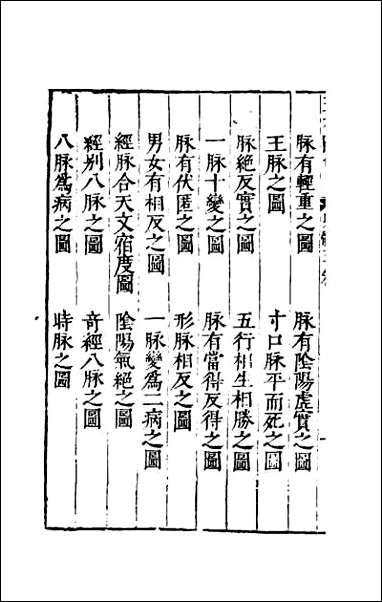 脉有輕重之圖　脉有陰陽虛實之圖
王脉之圖　寸口脉平而死之圖
脉絕反實之圖　五行相生相勝之圖
一脉十變之圖　脉有當得反得之圖
脉有伏匿之圖　形脉相反之圖
男女有相反之圖　一脉變爲二病之圖
經脉合天文宿度圖　陰陽氣絕之圖
經别八脉之圖　奇經八脉之圖
八脉爲病之圖　時脉之圖